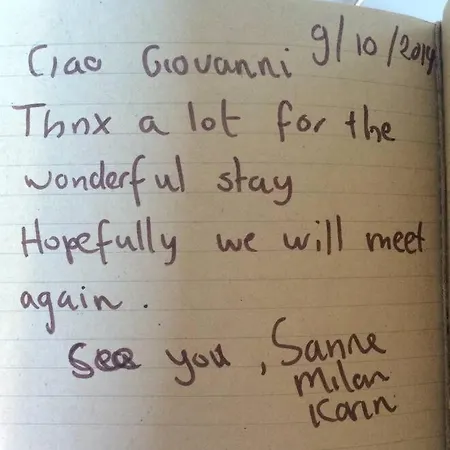 Ciao Giovanni 9/10/2014
Thnx a lot for the
wonderful stay
Hopefully we will meet
again.
See you, Sanne
Milan
Karin